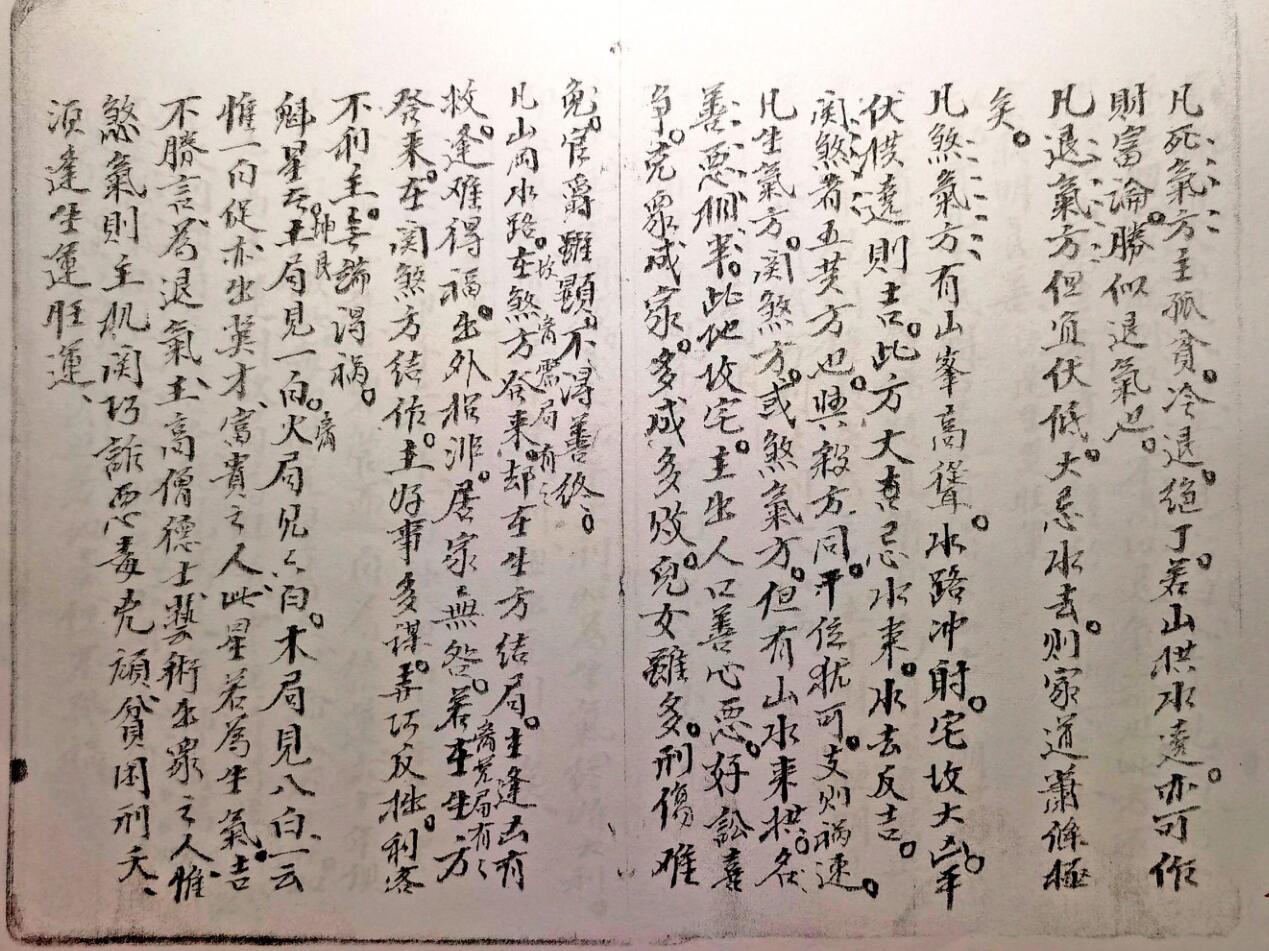 凡死氣方主孤貧。冷退。絕丁。若山拱水遠。亦可作
財富論。勝似退氣也。
凡退氣方但宜伏低。大忌水去。則家道蕭條極
矣。
凡煞氣方有山峯高聳。水路冲射。宅坟大凶。平
伏拱遠則吉。此方大忌水來。水去反吉。
関煞者五黄方也。與殺方同。干位犹可。支則禍速。
凡生氣方。関煞方。或煞氣方。但有山水來拱。名
善惡相半。此地坟宅。主出人口善心惡。好訟喜
争。克眾成家。多成多败。兒女雖多。刑傷难
免。官爵雖顯。不得善终。
凡山岡水路。在煞方發來。却在生方結局。主逢凶有
救。逢难得福。出外招非。居家無咎。若在生方
發來。在関煞方結作。主好事多謀。弄巧反拙。利客
不利主。無端得禍。
魁星者土局見一白。火局見六白。木局見八白。云
坤艮
惟一白促亦出英才、富貴之人、此星若為生氣。吉
不勝言。為退氣。主高僧德士、藝術出眾之人、惟
煞氣則主机関巧詐惡毒兇頑、貧困刑夭、
須逢生運旺運、